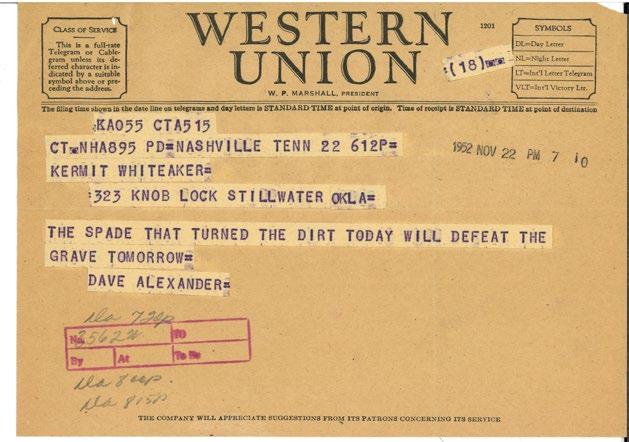 CLASS OF SERVICE
This is a full-rate
Telegram or Cable-
gram unless its de-
ferred character is in-
dicated by a suitable
symbol above or pre-
ceding the address.
WESTERN
UNION
W. P. MARSHALL, PRESIDENT
1201
(18)
SYMBOLS
DL=Day Letter
NL=Night Letter
LT=Int'l Letter Telegram
VLT=Int'l Victory Ltr.
The filing time shown in the date line on telegrams and day letters is STANDARD TIME at point of origin. Time of receipt is STANDARD TIME at point of destination
KA055 CTA515
CT=NHA895 PD=NASHVILLE TENN 22 612P=
1952 NOV 22 PM 7 10
KERMIT WHITEAKER=
323 KNOB LOCK STILLWATER OKLA=
THE SPADE THAT TURNED THE DIRT TODAY WILL DEFEAT THE
GRAVE TOMORROW=
DAVE ALEXANDER=
720p
No. 3562W TO
By At To Be
815P
THE COMPANY WILL APPRECIATE SUGGESTIONS FROM ITS PATRONS CONCERNING ITS SERVICE